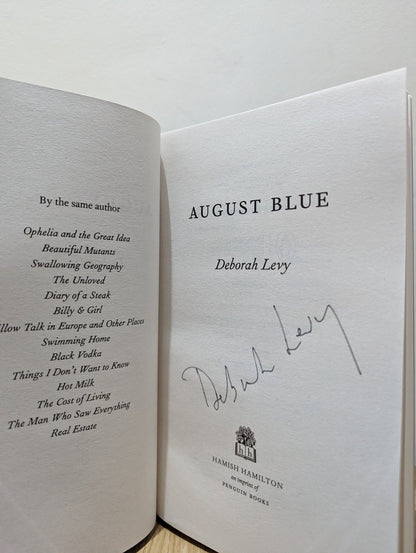 By the same author
Ophelia and the Great Idea
Beautiful Mutants
Swallowing Geography
The Unloved
Diary of a Steak
Billy & Girl
llow Talk in Europe and Other Places
Swimming Home
Black Vodka
Things I Don't Want to Know
Hot Milk
The Cost of Living
The Man Who Saw Everything
Real Estate
AUGUST BLUE
Deborah Levy
Deborah Levy
hh
HAMISH HAMILTON
an imprint of
PENGUIN BOOKS